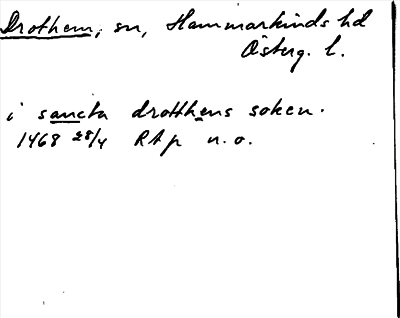 Drothem, sn, Hammarkinds hd
Österg. l.
i sancta drotthens soken.
1468 28/4 RAp n.o.